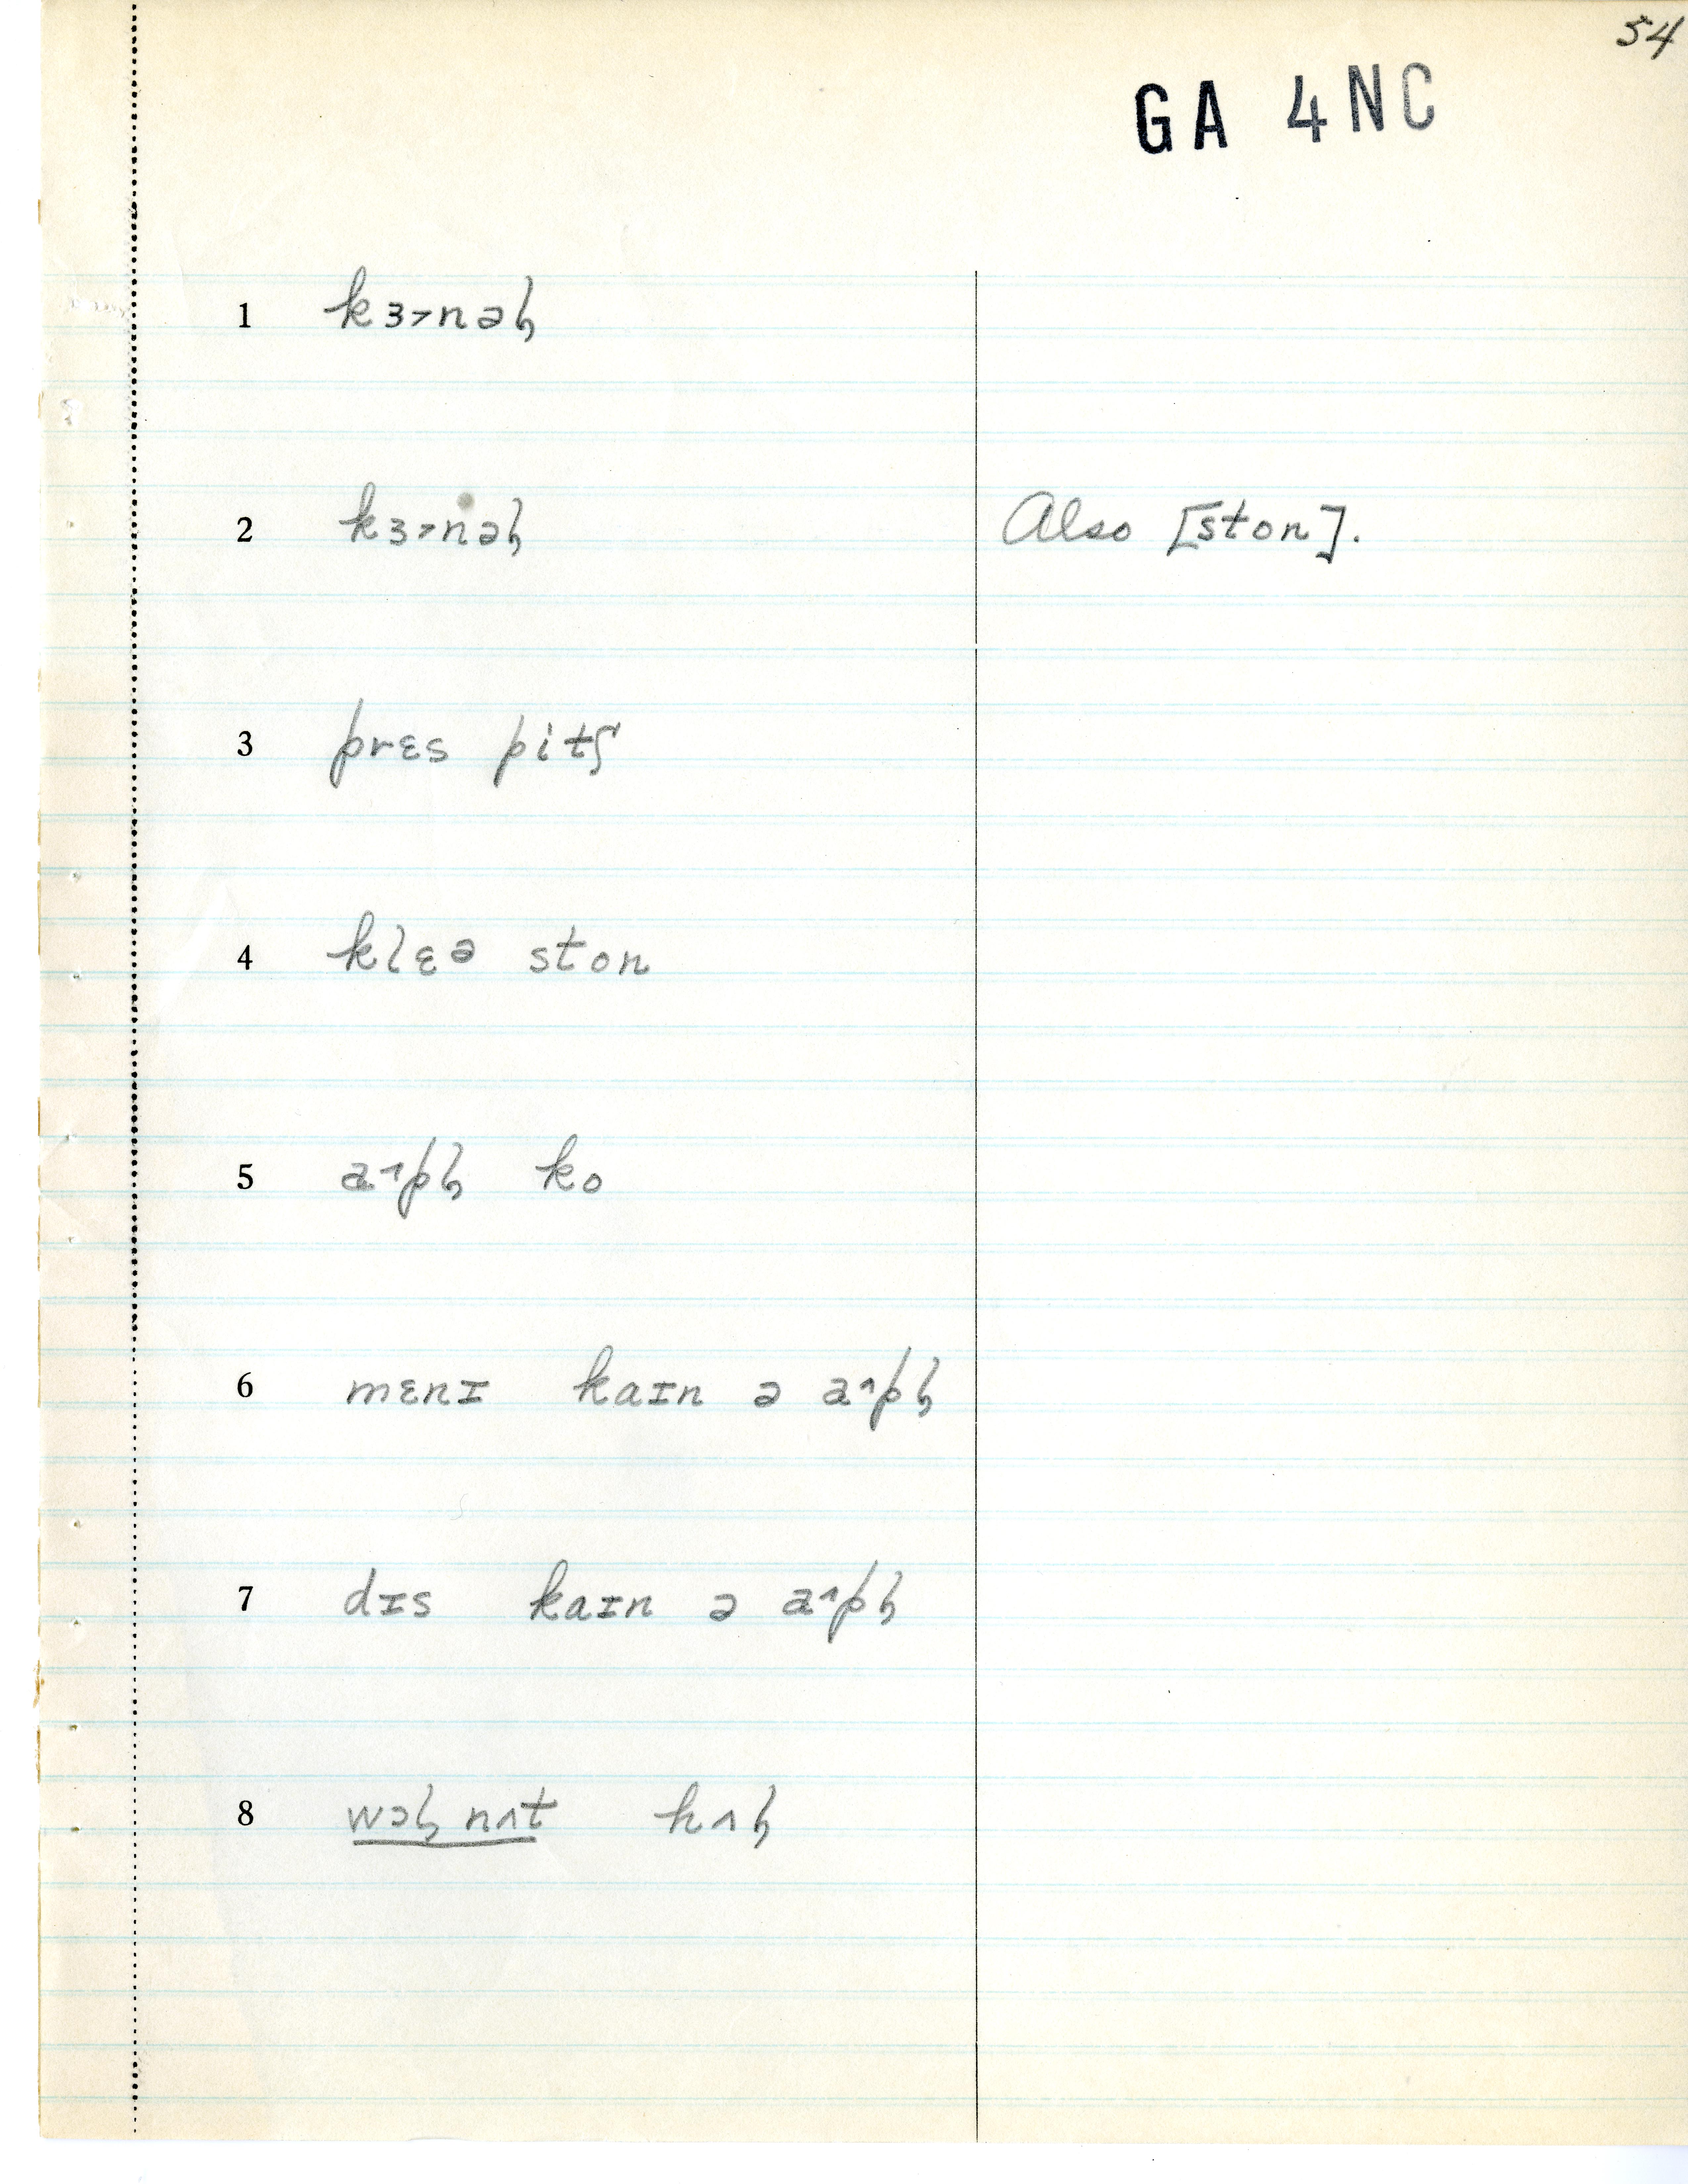 54
GA 4NC
1 kɜ˃nəɫ
2 kɜ˃nəɫ Also [ston].
3 prɛs pitʃ
4 klɛə ston
5 a˄pɫ ko
6 mɛnɪ kaɪn ə a˄pɫ
7 dɪs kaɪn ə a˄pɫ
8 wɔɫ nʌt hʌɫ